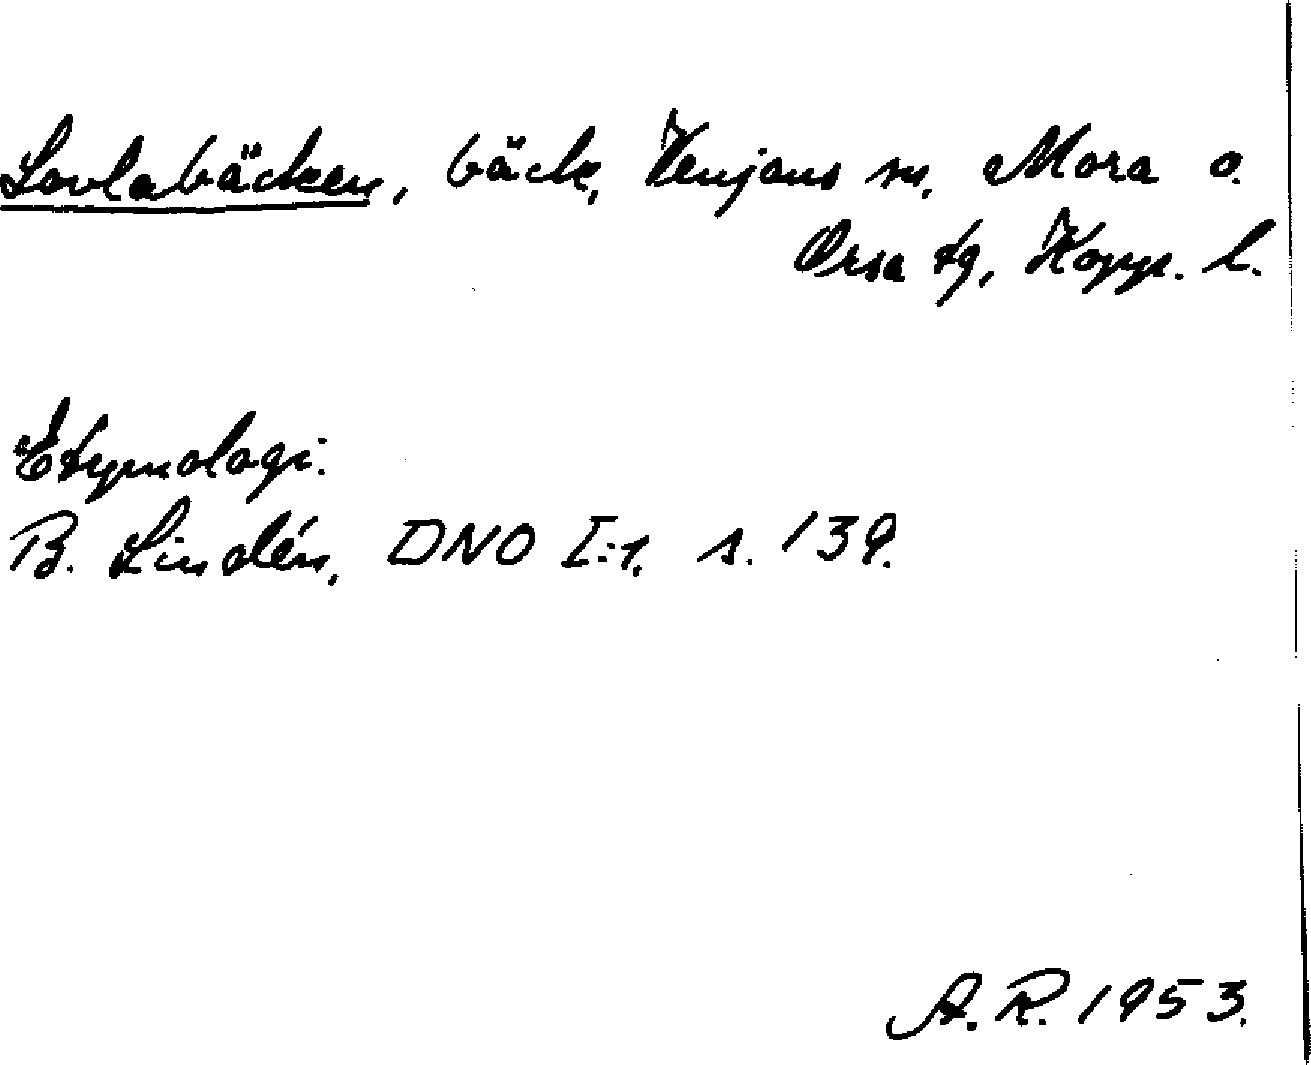 Lovlabäcken, bäck, Venjans sn, Mora o.
Orsa tg, Kopp. l.
Etymologi:
B. Lindén, DNO I:1, s. 139.
A.R. 1953.